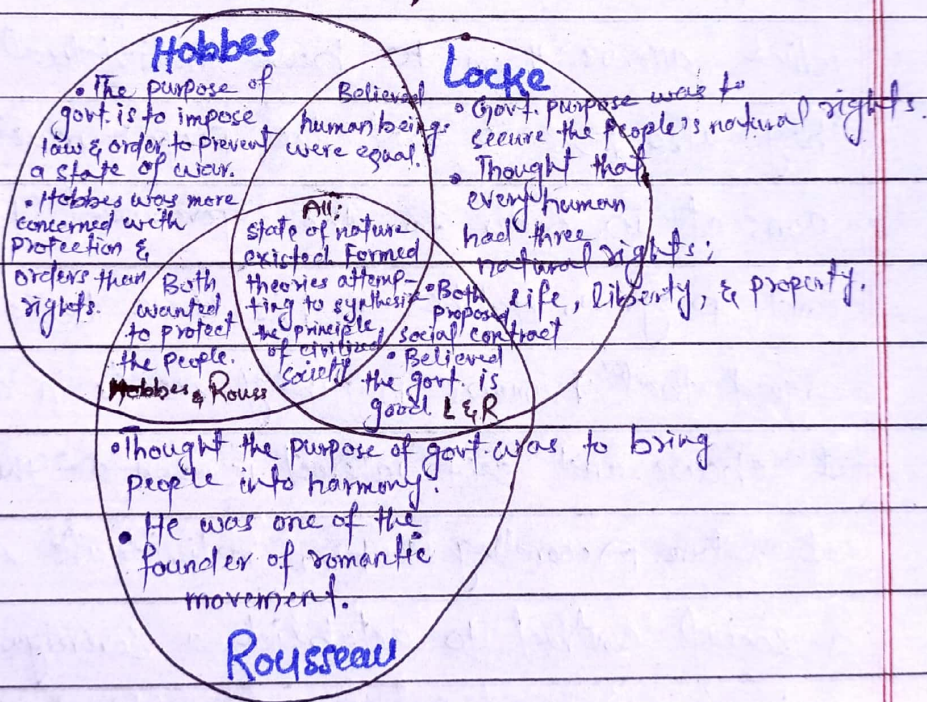 Hobbes
• The purpose of
govt. is to impose
law & order to prevent
a state of war.
• Hobbes was more
concerned with
Protection &
orders than
rights.
Believed
human beings
were equal.
Locke
• Govt. purpose was to
secure the people's natural rights.
• Thought that
every human
had three
natural rights;
life, liberty, & property.
All;
State of nature
existed. Formed
theories attemp-
ting to synthesis
the principle
of civilized
society
Both
wanted
to protect
the people.
Hobbes & Rouss
• Both
proposed
social contract
• Believed
the govt. is
good L & R
• Thought the purpose of govt. was to bring
people into harmony.
• He was one of the
founder of romantic
movement.
Rousseau